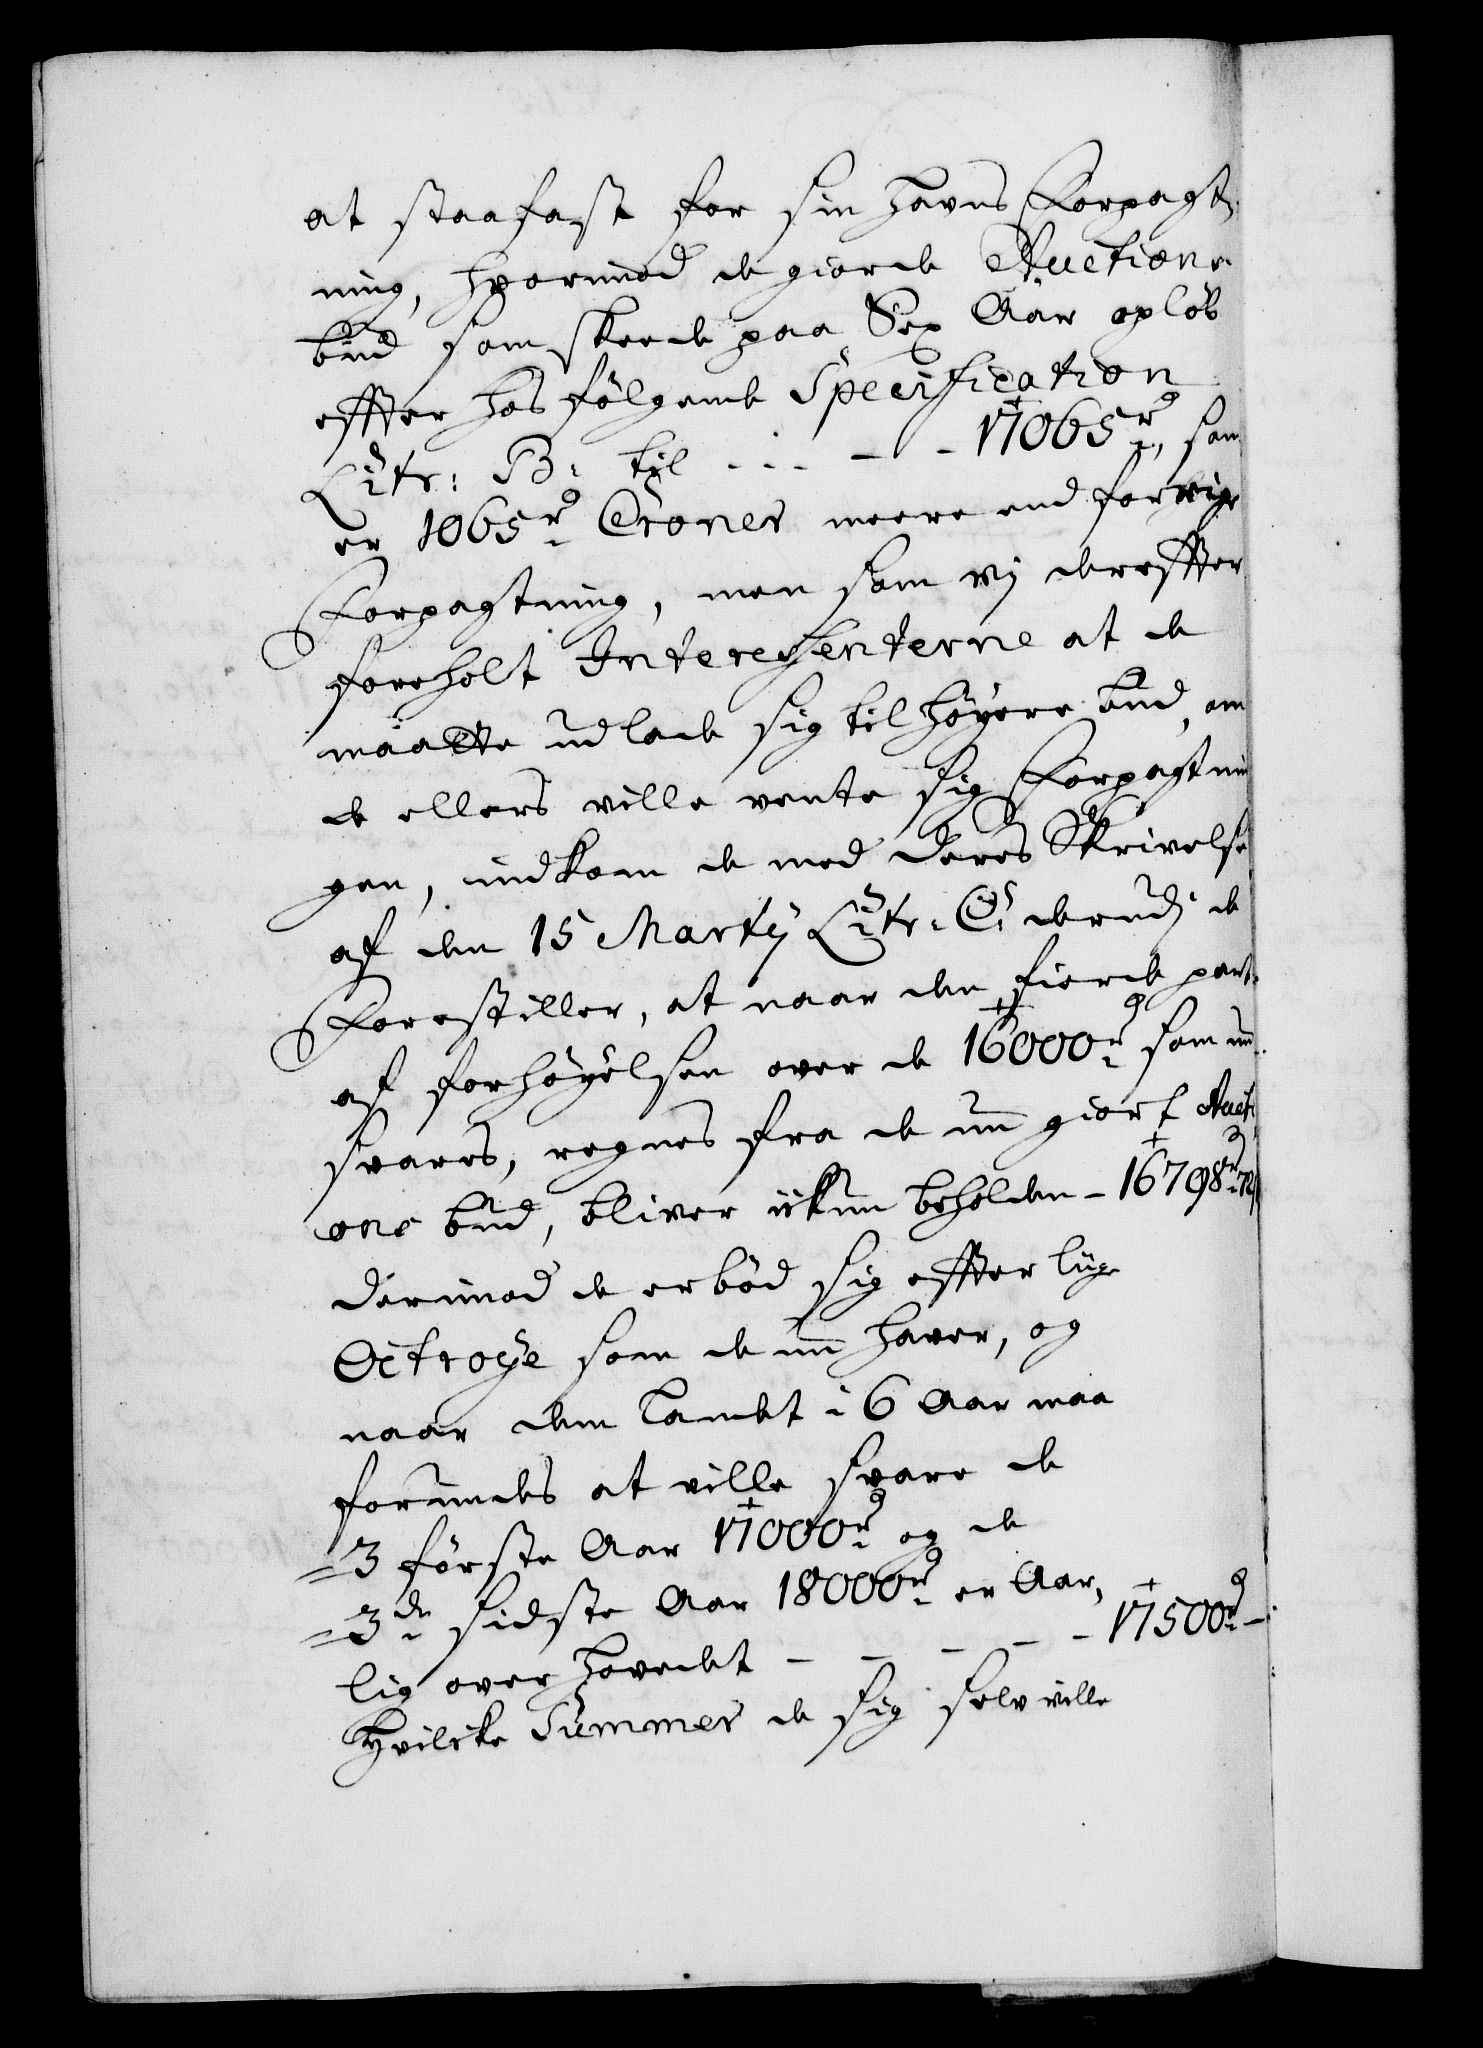 at staa fast for sin havns Forpagt-
ning, hvormod de giorde Auctions
bud som skeede paa Sex Aar opløb
effter hos følgende Specification
Litr: B: til - - - - - 17065 rd, som
er 1065 rd Croner meere end forrige
Forpagtning, men som vj dereffter
foreholt Interessenterne at de
maatte udlade sig til høyere bud, om
de ellers ville vente sig Forpagtnin
gen, indkom de med deres Skrivelse
af den 15 Martij Litr: C: derudj de
Forestiller, at naar den fierde part
af forhøyelsen over de 16000 rd som nu
svares, regnes fra de nu giort Aucti
ons bud, bliver ickun beholden - 16798 rd
Derimod de erbød sig effter liige
Octroye som de nu haver, og
naar dem Landet i 6 Aar maa
forundes at ville svare de
3 første Aar 17000 rd og de
3de sidste Aar 18000 rd er Aar,
lig over hovedet - - - - - 17500 rd -
Hvilcke Summer de sig selv ville